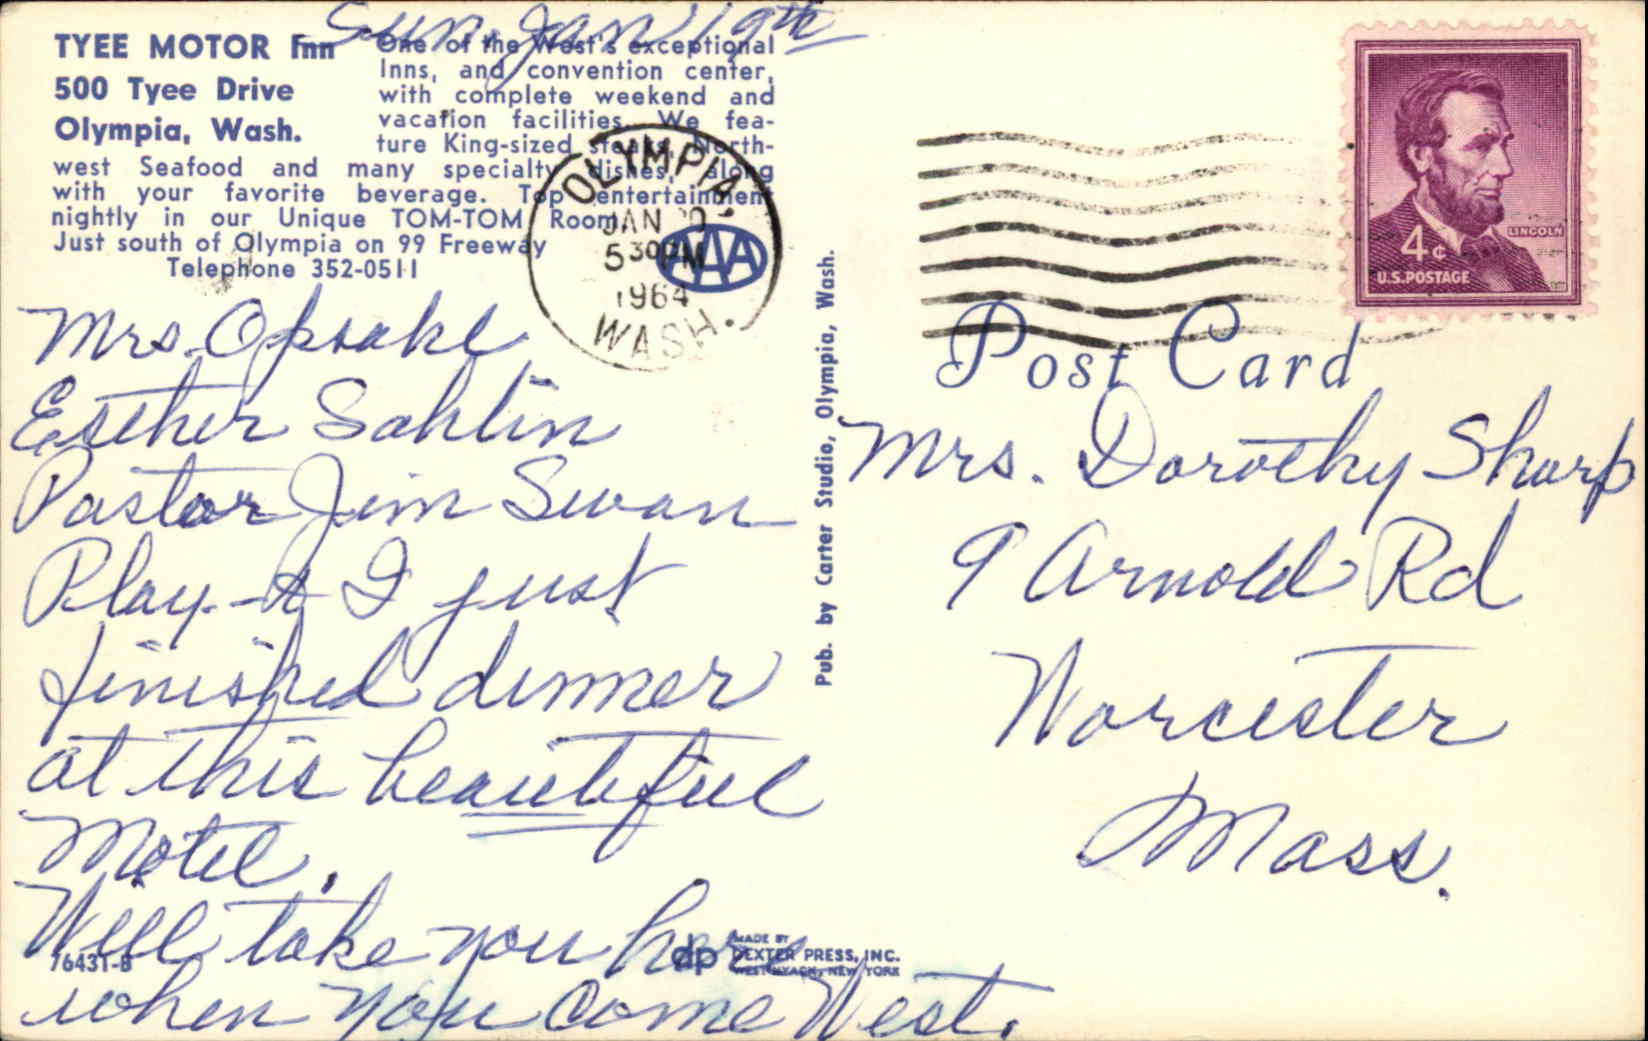 Sun Jan 19th
TYEE MOTOR Inn
500 Tyee Drive
Olympia, Wash.
One of the West's exceptional
Inns, and convention center,
with complete weekend and
vacation facilities. We fea-
ture King-sized steaks, North-
west Seafood and many specialty dishes, along
with your favorite beverage. Top entertainment
nightly in our Unique TOM-TOM Room
Just south of Olympia on 99 Freeway
Telephone 352-0511
AAA
OLYMPIA
JAN
5 30 PM
1964
WASH.
Mrs. Opsahl
Esther Sahlin
Pastor Jim Swan
Play & I just
finished dinner
at this beautiful
Motel.
Will take you here
when you come West.
76431-B
dp MADE BY
DEXTER PRESS, INC.
WEST NYACK, NEW YORK
Pub. by Carter Studio, Olympia, Wash.
LINCOLN
4¢
U.S. POSTAGE
Post Card
Mrs. Dorothy Sharp
9 Arnold Rd
Worcester
Mass.